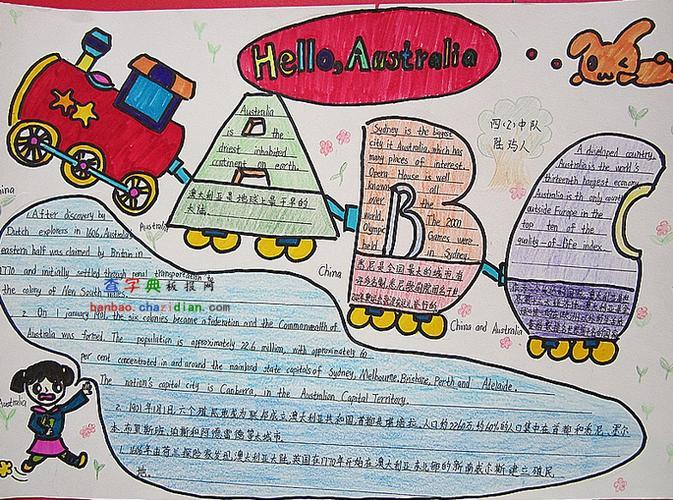 Hello, Australia
Australia
is the
driest inhabited
continent on earth.
澳大利亚是地球上最干旱的
大陆.
Sydney is the biggest
city it Australia, which has
many places of interest.
Opera House is well
known all
over the
world. The 2000
Olympic Games were
held in Sydney.
悉尼是全国最大的城市,有
许多名胜,悉尼歌剧院
A developed country,
Australia is the world's
thirteenth largest economy.
Australia is th only country
outside Europe in the
top ten of the
quality-of-life index
四(2)中队
China
Australia
China
China and Australia
Australia
1. After discovery by
Dutch explorers in 1606, Australia's
eastern half was claimed by Britain in
1770 and initially settled through penal transportation to
the colony of New South Wales.
查字典 板报网
banbao.chazidian.com
2. On 1 January 1901, the six colonies became a federation and the Commonwealth of
Australia was formed. The population is approximately 22.6 million, with approximately 60
per cent concentrated in and around the mainland state capitals of Sydney, Melbourne, Brisbane, Perth and Adelaide.
The nation's capital city is Canberra, in the Australian Capital Territory.
2. 1901年1月1日,六个殖民地成为联邦成立澳大利亚共和国,首都是堪培拉.人口约2260万,约60%的人口集中在首都和悉尼、墨尔
本、布里斯班、珀斯和阿德雷德等大城市.
1. 1606年由荷兰探险家发现澳大利亚大陆,英国在1770年开始在澳大利亚东北部的新南威尔斯建立殖民
地.